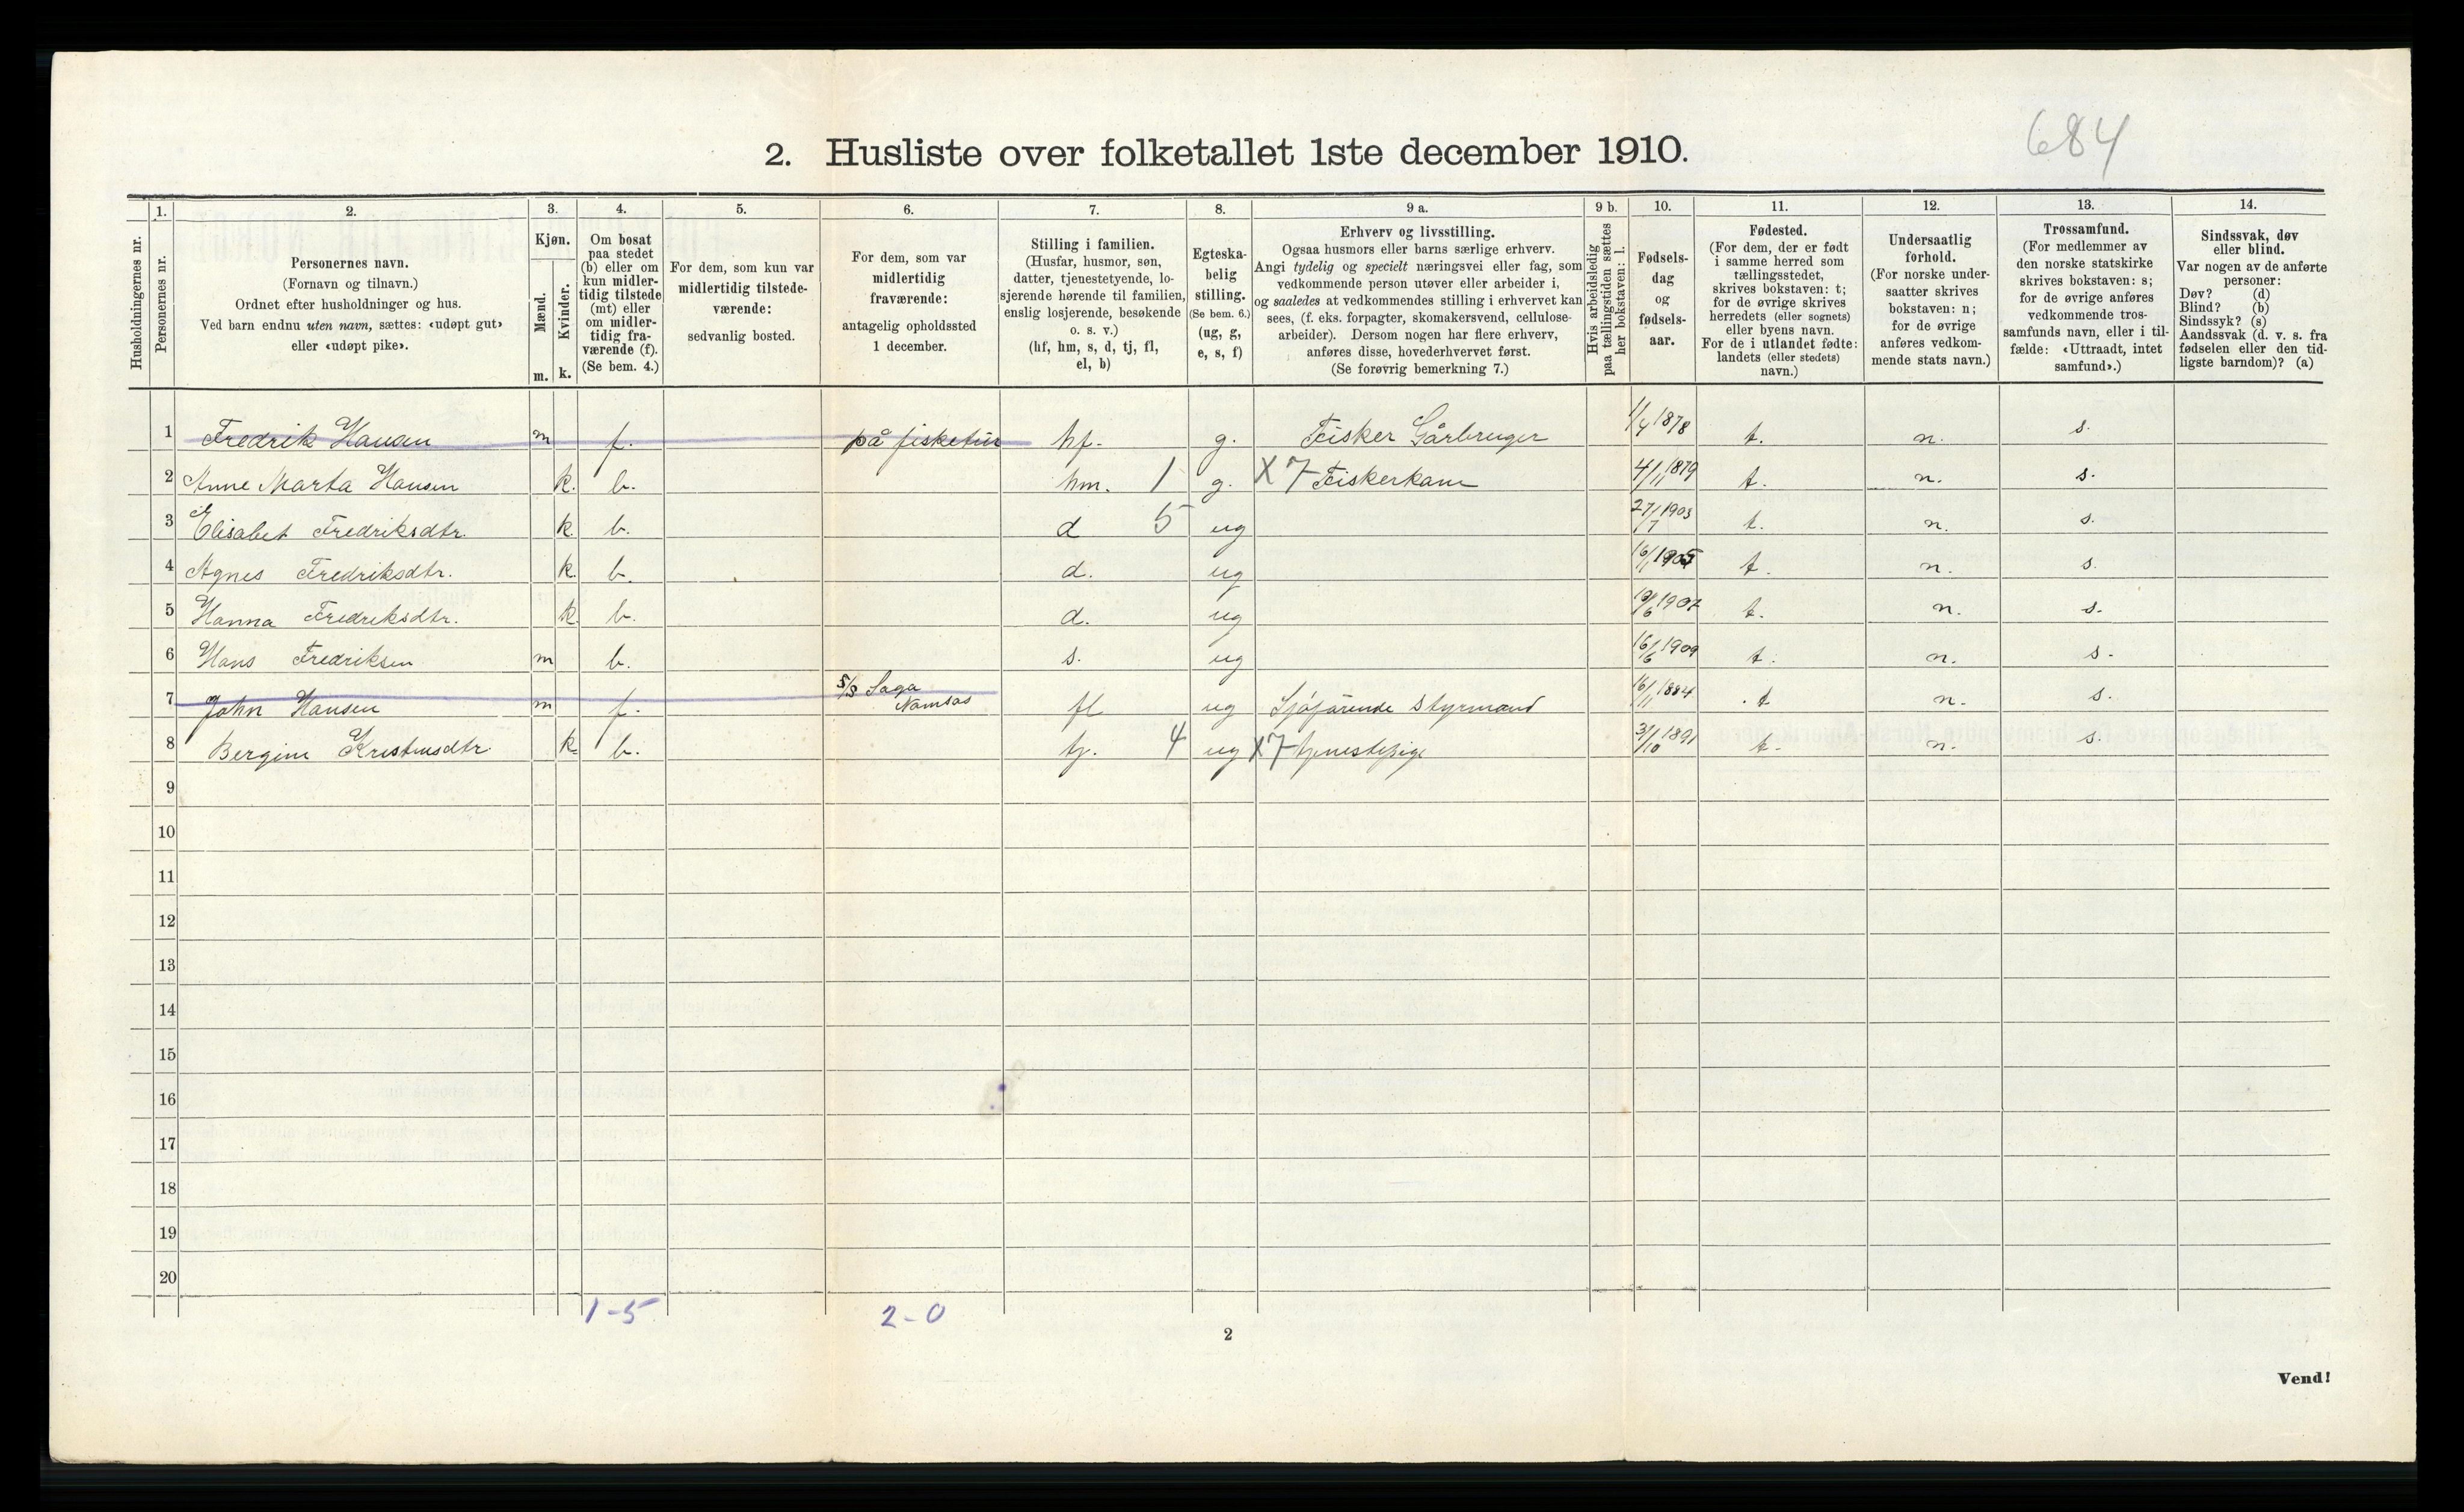 684
2. Husliste over folketallet 1ste december 1910.
Husholdningernes nr.
1.
Personernes nr.
2.
Personernes navn.
(Fornavn og tilnavn.)
Ordnet efter husholdninger og hus.
Ved barn endnu uten navn, sættes: «udøpt gut»
eller «udøpt pike».
3.
Kjøn.
Mænd.
Kvinder.
m. k.
4.
Om bosat
paa stedet
(b) eller om
kun midler-
tidig tilstede
(mt) eller
om midler-
tidig fra-
værende (f).
(Se bem. 4.)
5.
For dem, som kun var
midlertidig tilstede-
værende:
sedvanlig bosted.
6.
For dem, som var
midlertidig
fraværende:
antagelig opholdssted
1 december.
7.
Stilling i familien.
(Husfar, husmor, søn,
datter, tjenestetyende, lo-
sjerende hørende til familien,
enslig losjerende, besøkende
o. s. v.)
(hf, hm, s, d, tj, fl,
el, b)
8.
Egteska-
belig
stilling.
(Se bem. 6.)
(ug, g,
e, s, f)
9 a.
Erhverv og livsstilling.
Ogsaa husmors eller barns særlige erhverv.
Angi tydelig og specielt næringsvei eller fag, som
vedkommende person utøver eller arbeider i,
og saaledes at vedkommendes stilling i erhvervet kan
sees, (f. eks. forpagter, skomakersvend, cellulose-
arbeider). Dersom nogen har flere erhverv,
anføres disse, hovederhvervet først.
(Se forøvrig bemerkning 7.)
9 b.
Hvis arbeidsledig
paa tællingstiden sættes
her bokstaven: l.
10.
Fødsels-
dag
og
fødsels-
aar.
11.
Fødested.
(For dem, der er født
i samme herred som
tællingsstedet,
skrives bokstaven: t;
for de øvrige skrives
herredets (eller sognets)
eller byens navn.
For de i utlandet fødte:
landets (eller stedets)
navn.)
12.
Undersaatlig
forhold.
(For norske under-
saatter skrives
bokstaven: n;
for de øvrige
anføres vedkom-
mende stats navn.)
13.
Trossamfund.
(For medlemmer av
den norske statskirke
skrives bokstaven: s;
for de øvrige anføres
vedkommende tros-
samfunds navn, eller i til-
fælde: «Uttraadt, intet
samfund».)
14.
Sindssvak, døv
eller blind.
Var nogen av de anførte
personer:
Døv? (d)
Blind? (b)
Sindssyk? (s)
Aandssvak (d. v. s. fra
fødselen eller den tid-
ligste barndom)? (a)
1 Fredrik Hansen m f. på fisketur hf. g. Fisker Gårbruger 1/4 1878 t. n. s.
2 Anne Marta Hansen k. b. hm. 1 g. X 7 Fiskerkone 4/11 1879 t. n. s.
3 Elisabet Fredriksdtr. k b. d 5 ug 27/7 1903 t. n. s.
4 Agnes Fredriksdtr. k. b. d. ug 16/1 1905 t. n. s.
5 Hanna Fredriksdtr. k b. d. ug 1907 t. n. s.
6 Hans Fredriksen m b. s. ug 16/6 1909 t. n. s.
7 John Hansen m f. S/S Saga Namsos fl ug Sjøfarende Styrmand 16/11 1884 t n. s.
8 Bergine Kristensdtr. k b. tj. 4 ug X7 tjenestepige 31/10 1891 t. n. s.
9
10
11
12
13
14
15
16
17
18
19
20
1-5 2-0
2
Vend!